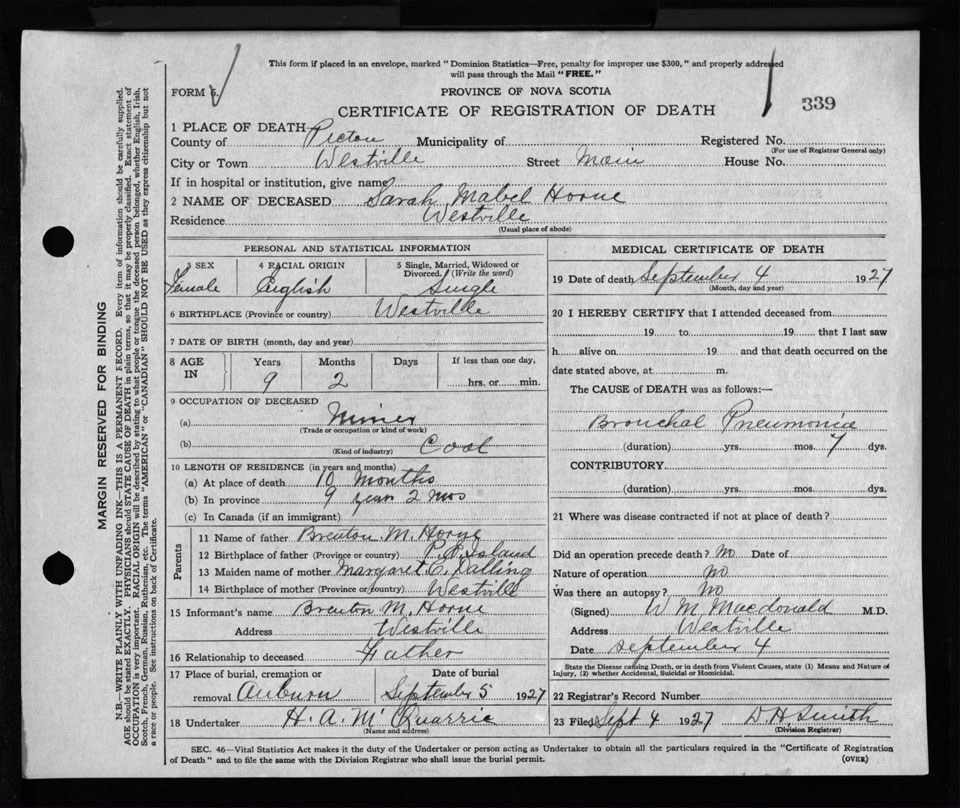 This form if placed in an envelope, marked "Dominion Statistics—Free, penalty for improper use $300," and properly addressed
will pass through the Mail "FREE."
FORM 6.
PROVINCE OF NOVA SCOTIA
CERTIFICATE OF REGISTRATION OF DEATH
339
1 PLACE OF DEATH
County of Pictou Municipality of Registered No.
(For use of Registrar General only)
City or Town Westville Street Main House No.
If in hospital or institution, give name
2 NAME OF DECEASED Sarah Mabel Horne
Residence Westville
(Usual place of abode)
PERSONAL AND STATISTICAL INFORMATION
3 SEX 4 RACIAL ORIGIN 5 Single, Married, Widowed or
Divorced. (Write the word)
Female English Single
6 BIRTHPLACE (Province or country) Westville
7 DATE OF BIRTH (month, day and year)
8 AGE IN Years Months Days If less than one day,
9 2 hrs. or min.
9 OCCUPATION OF DECEASED
(a) Miner
(Trade or occupation or kind of work)
(b) Coal
(Kind of industry)
10 LENGTH OF RESIDENCE (in years and months)
(a) At place of death 10 months
(b) In province 9 years 2 mos
(c) In Canada (if an immigrant)
Parents
11 Name of father Brenton M. Horne
12 Birthplace of father (Province or country) P. E. Island
13 Maiden name of mother Margaret E. Dalling
14 Birthplace of mother (Province or country) Westville
15 Informant's name Brenton M. Horne
Address Westville
16 Relationship to deceased Father
17 Place of burial, cremation or Date of burial
removal Auburn September 5 1927
18 Undertaker H. A. McQuarrie
(Name and address)
MEDICAL CERTIFICATE OF DEATH
19 Date of death September 4 1927
(Month, day and year)
20 I HEREBY CERTIFY that I attended deceased from
19 to 19 that I last saw
h alive on 19 and that death occurred on the
date stated above, at m.
The CAUSE of DEATH was as follows:—
Bronchal Pneumonia
(duration) yrs. mos. 7 dys.
CONTRIBUTORY
(duration) yrs. mos. dys.
21 Where was disease contracted if not at place of death?
Did an operation precede death? No Date of
Nature of operation No
Was there an autopsy? No
(Signed) W. M. Macdonald M.D.
Address Westville
Date September 4
State the Disease causing Death, or in death from Violent Causes, state (1) Means and Nature of
Injury, (2) whether Accidental, Suicidal or Homicidal.
22 Registrar's Record Number
23 Filed Sept 4 1927 D. H. Smith
(Division Registrar)
SEC. 46—Vital Statistics Act makes it the duty of the Undertaker or person acting as Undertaker to obtain all the particulars required in the "Certificate of Registration
of Death" and to file the same with the Division Registrar who shall issue the burial permit.
(OVER)
MARGIN RESERVED FOR BINDING
N.B.—WRITE PLAINLY WITH UNFADING INK—THIS IS A PERMANENT RECORD. Every item of information should be carefully supplied.
AGE should be stated EXACTLY. PHYSICIANS should STATE CAUSE OF DEATH in plain terms, so that it may be properly classified. Exact statement of
OCCUPATION is very important. RACIAL ORIGIN will be described by stating to what people or tongue the deceased person belonged, whether English, Irish,
Scotch, French, German, Russian, Ruthenian, etc. The terms "AMERICAN" or "CANADIAN" SHOULD NOT BE USED as they express citizenship but not
a race or people. See instructions on back of Certificate.